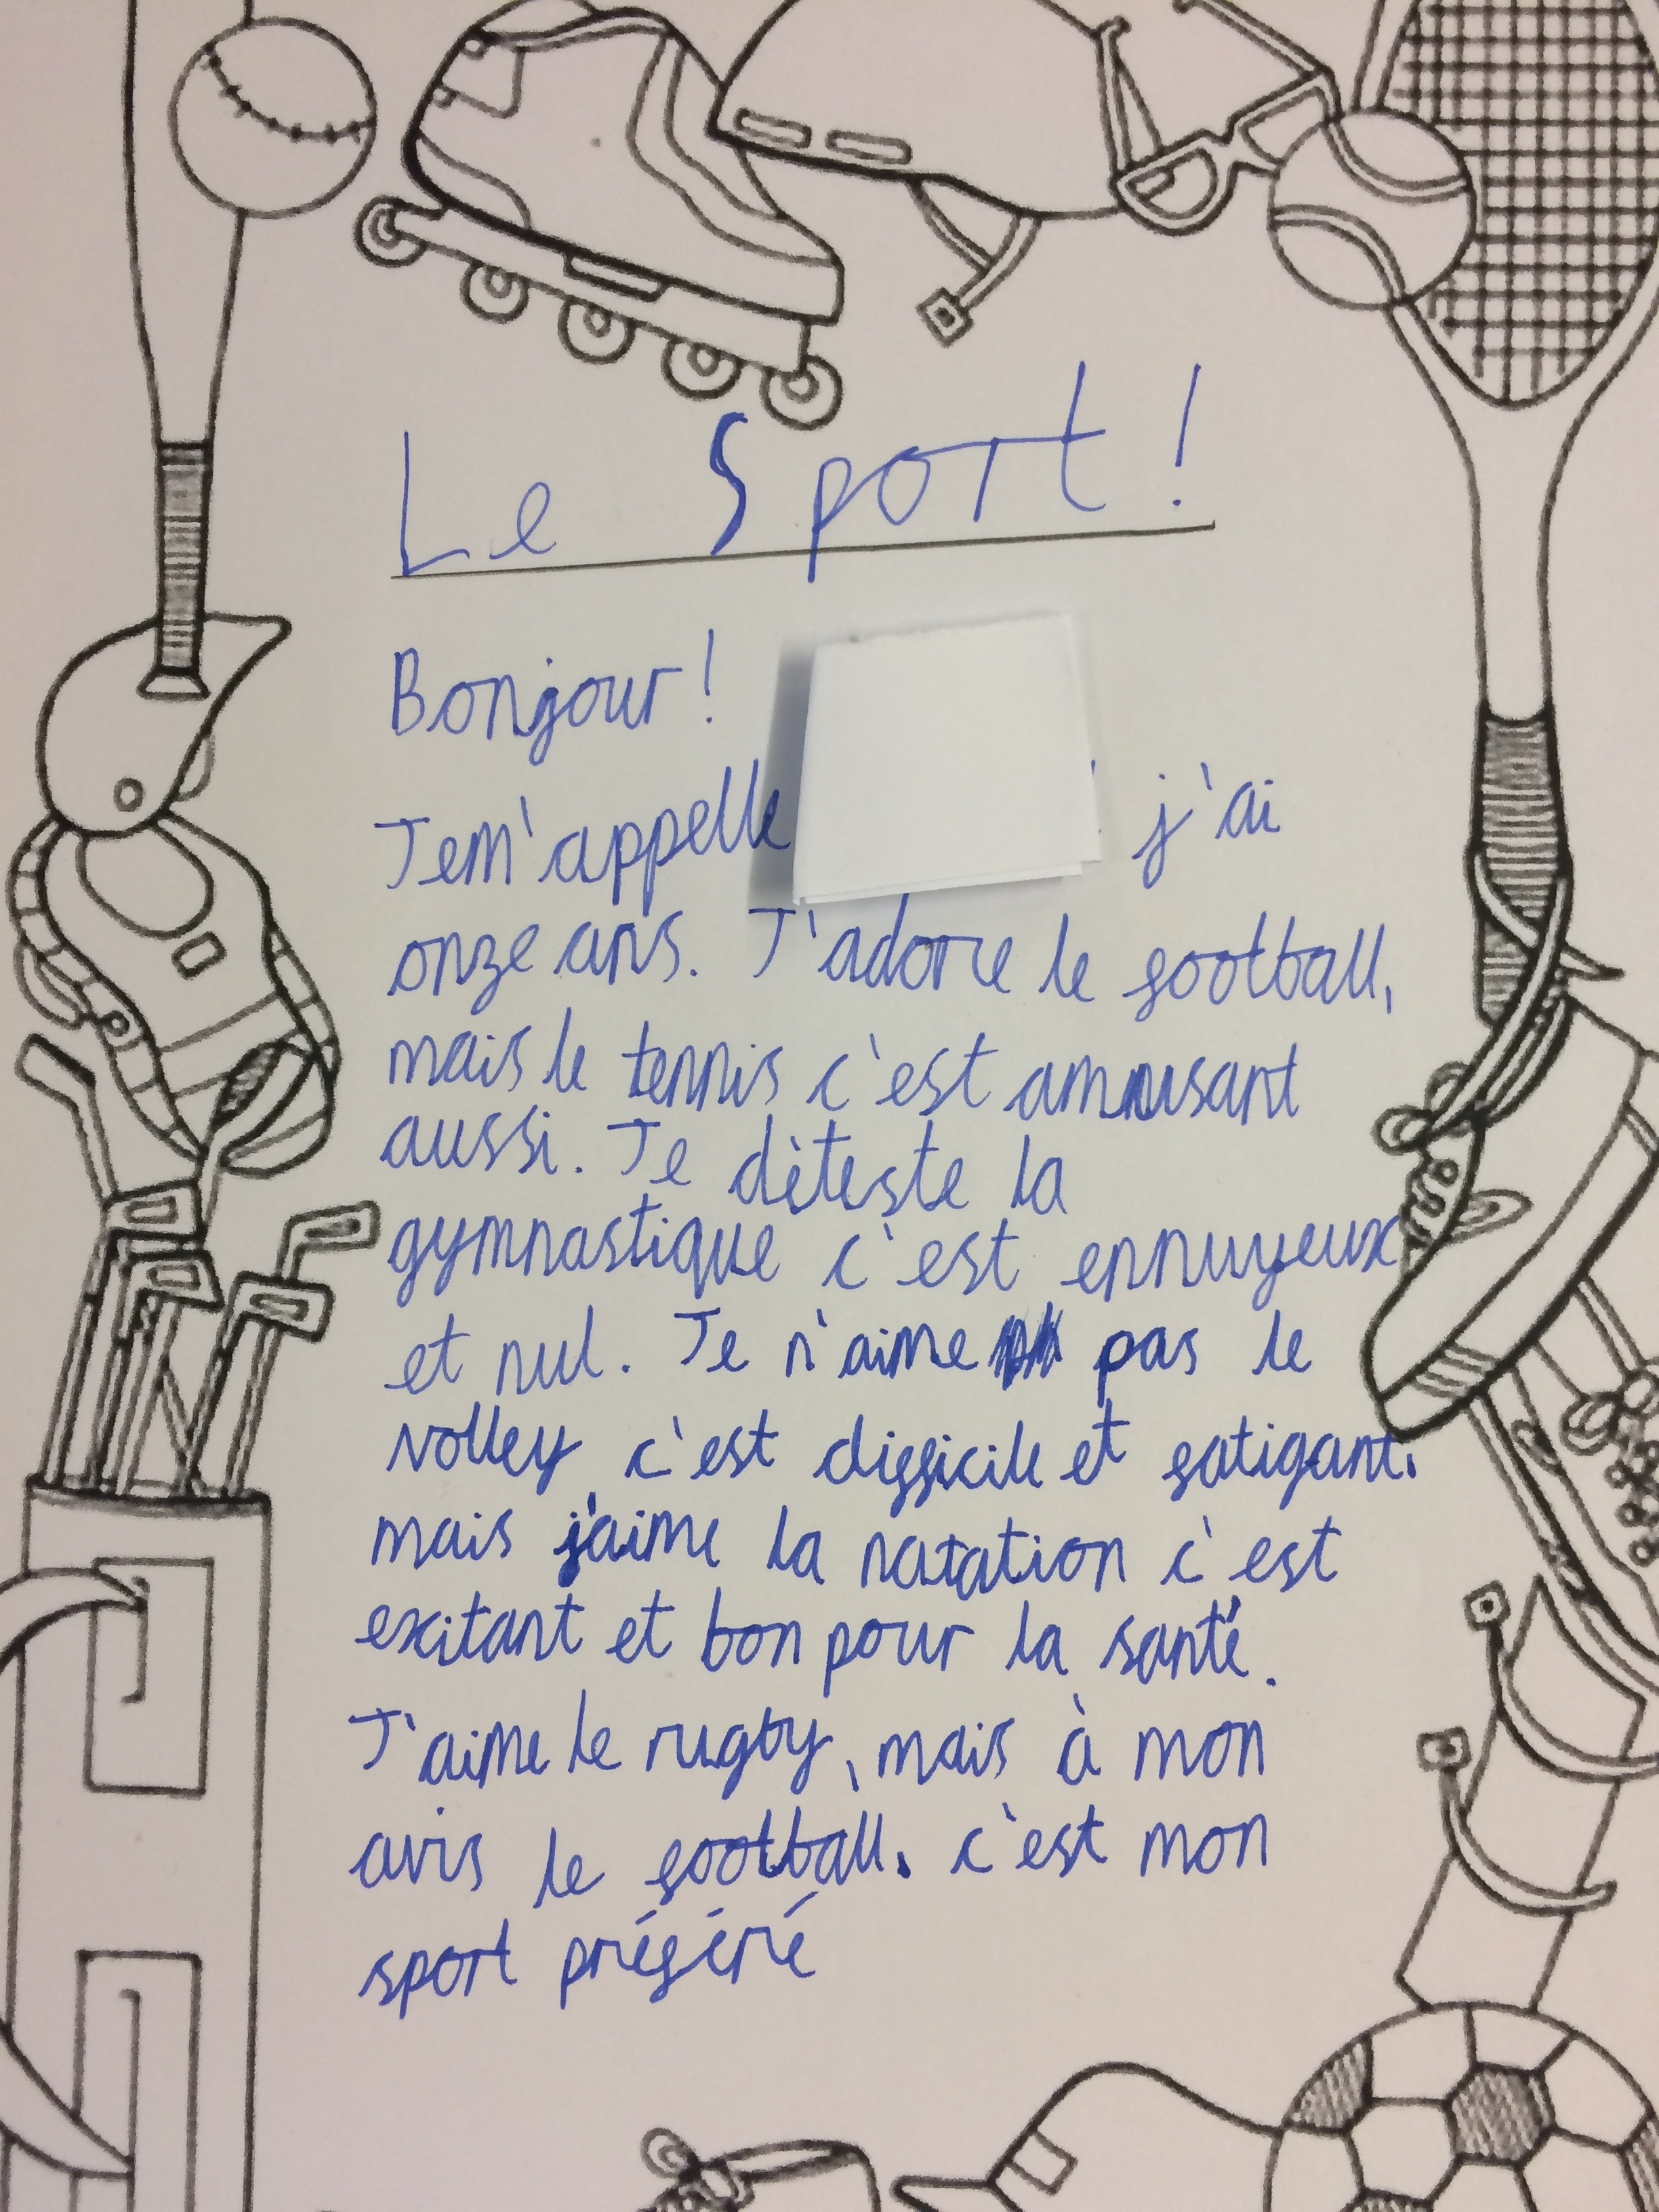 Le Sport!
Bonjour!
Je m'appelle j'ai
onze ans. J'adore le football,
mais le tennis c'est amusant
aussi. Je dèteste la
gymnastique c'est ennuyeux
et nul. Je n'aime pas le
volley, c'est difficile et fatigant.
mais j'aime la natation c'est
exitant et bon pour la santé.
J'aime le rugby, mais à mon
avis le football. c'est mon
sport préféré